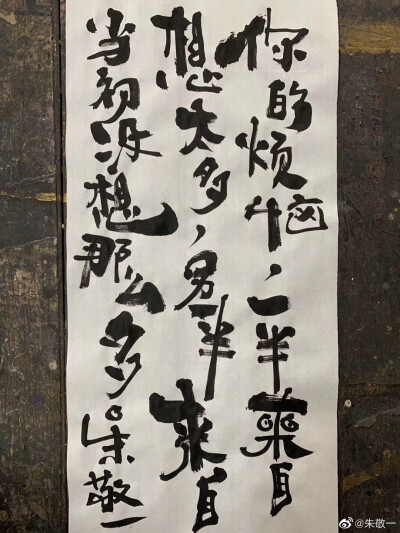 你的烦恼，一半来自
想太多，另一半来自
当初没想那么多。朱敬一
@朱敬一